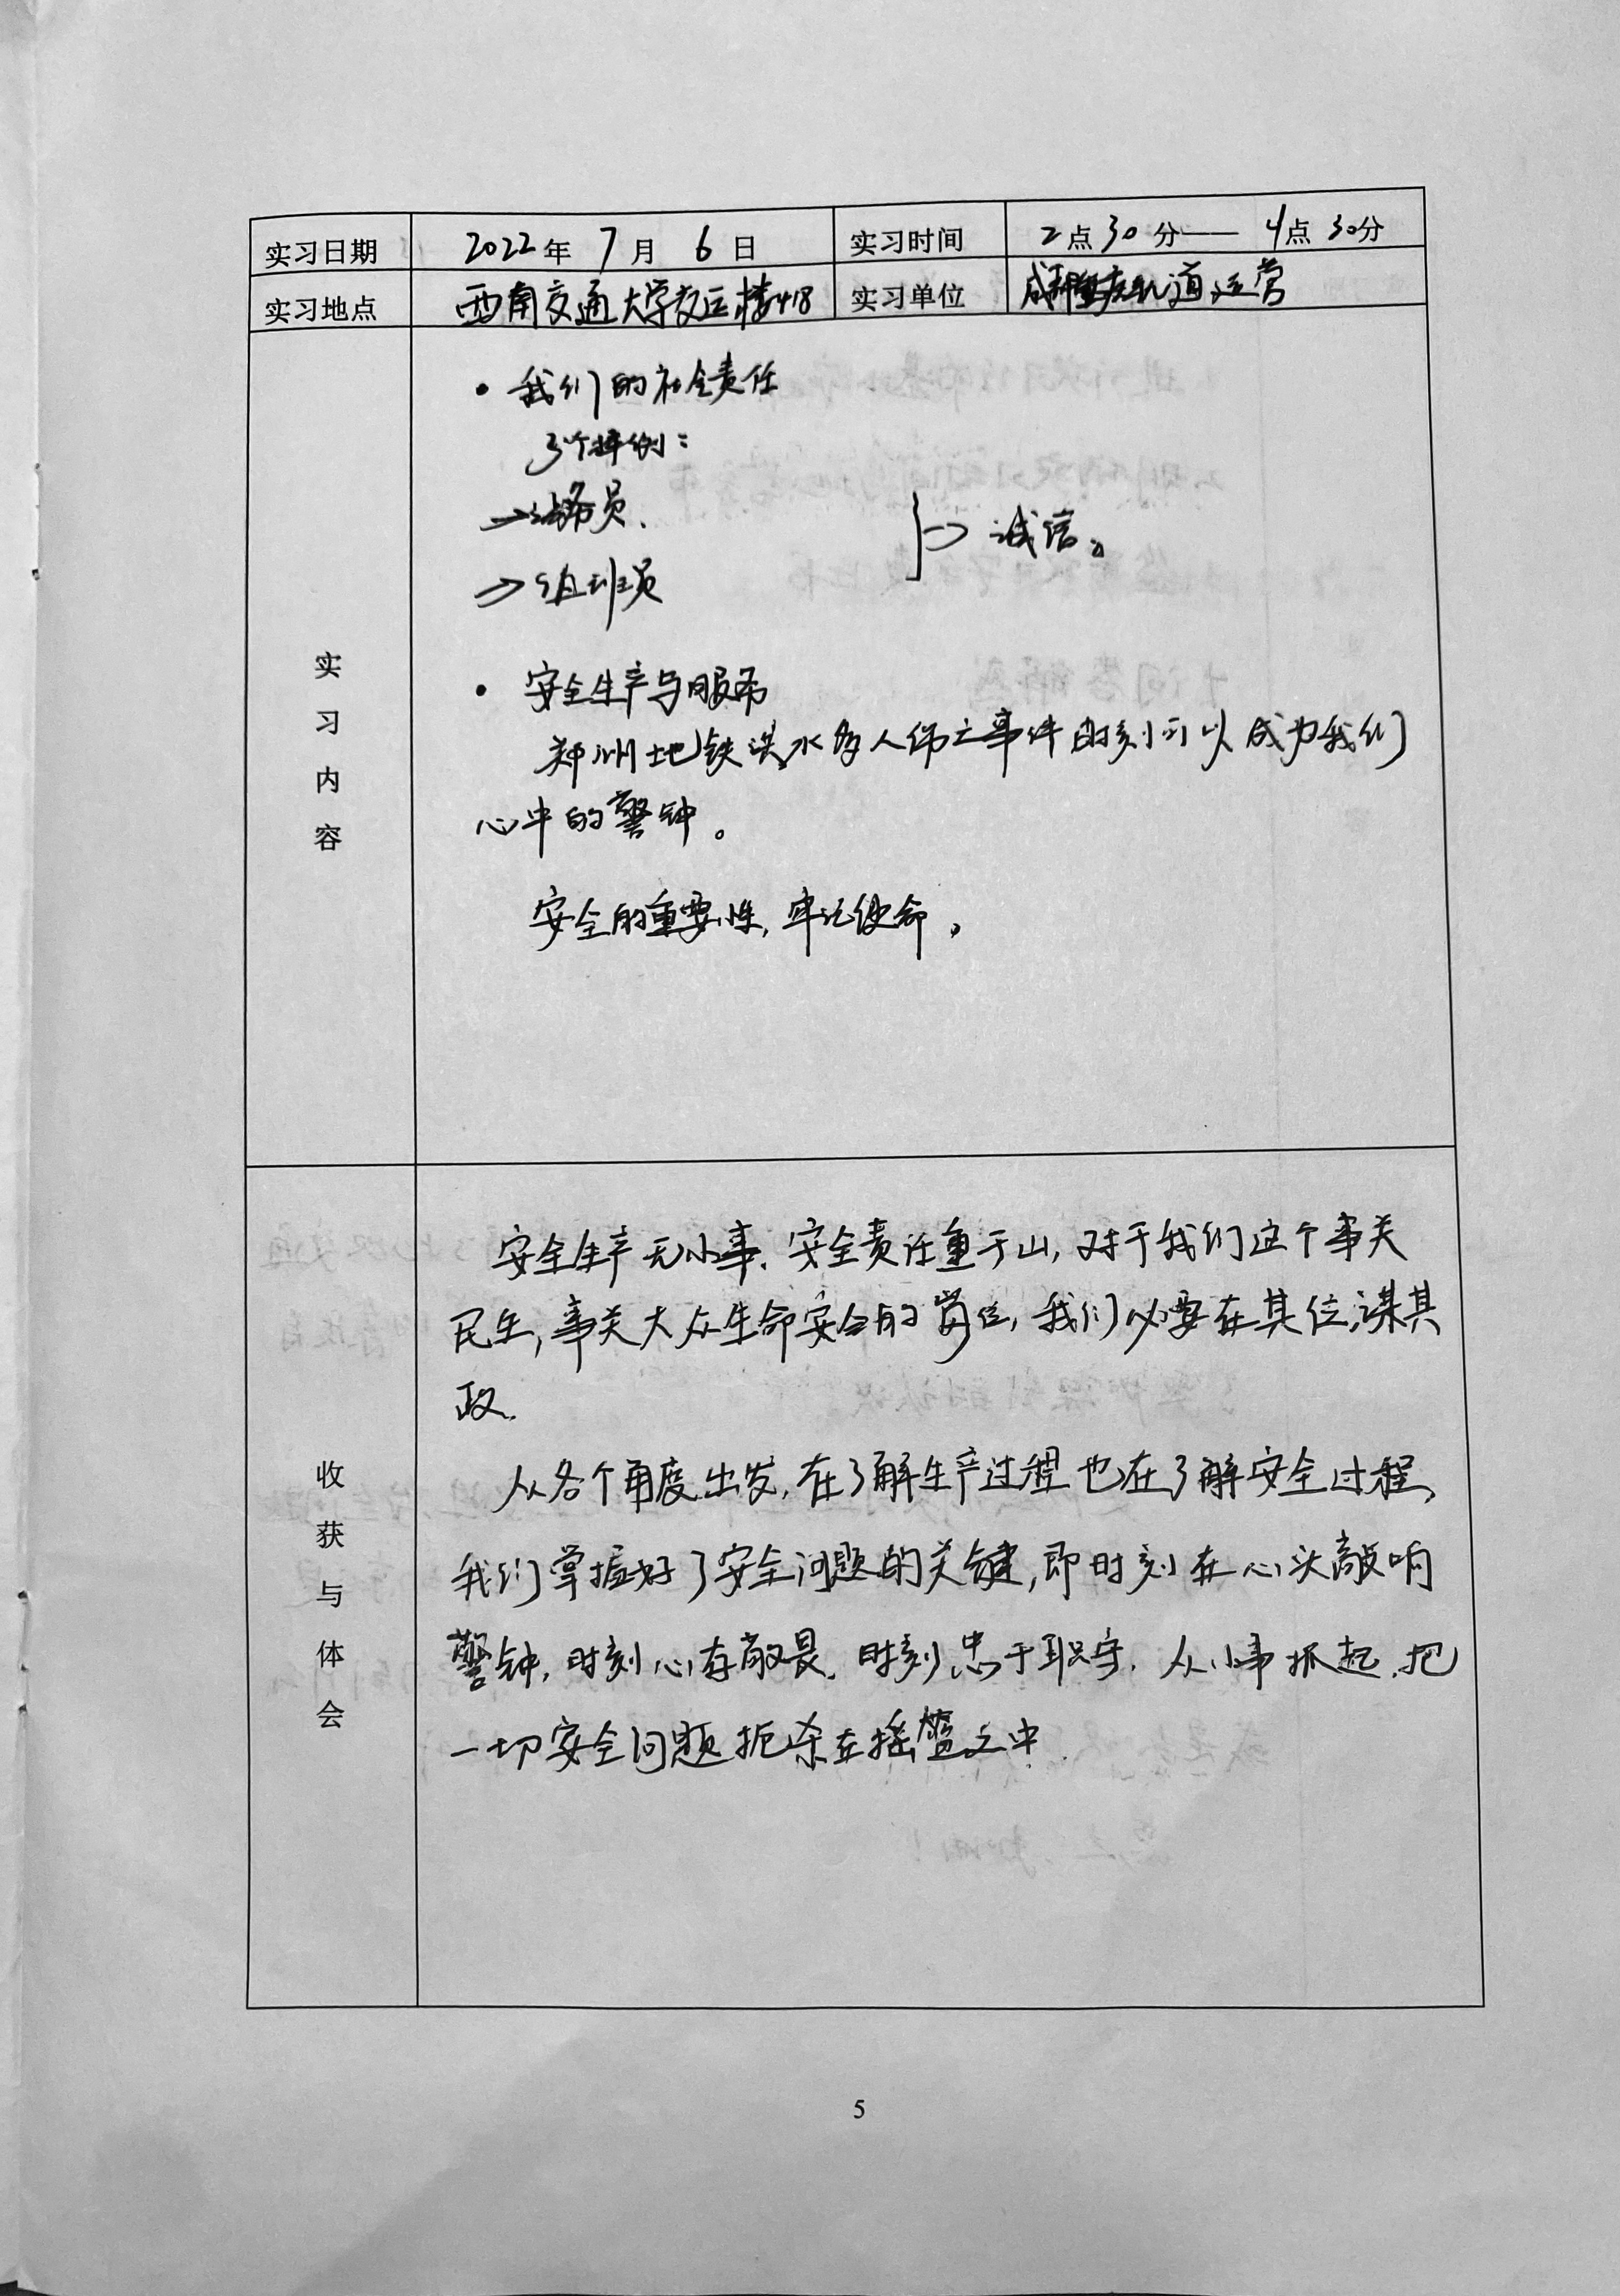 实习日期 2022年 7月 6日 实习时间 2点30分—— 4点30分
实习地点 西南交通大学 楼418 实习单位 轨道运营
实习内容
• 我们的社会责任
3个 例：
→ 务员、
→ 组班员
→ 诚信。
• 安全生产与服务
郑州地铁洪水多人伤亡事件时刻可以成为我们
心中的警钟。
安全的重要性，牢记使命。
收获与体会
安全生产无小事、安全责任重于山，对于我们这个事关
民生，事关大众生命安全的岗位，我们必要在其位，谋其
政.
从各个角度出发，在了解生产过程也在了解安全过程，
我们掌握好了安全问题的关键，即时刻在心头敲响
警钟，时刻心存敬畏，时刻忠于职守，从小事抓起，把
一切安全问题扼杀在摇篮之中.
5